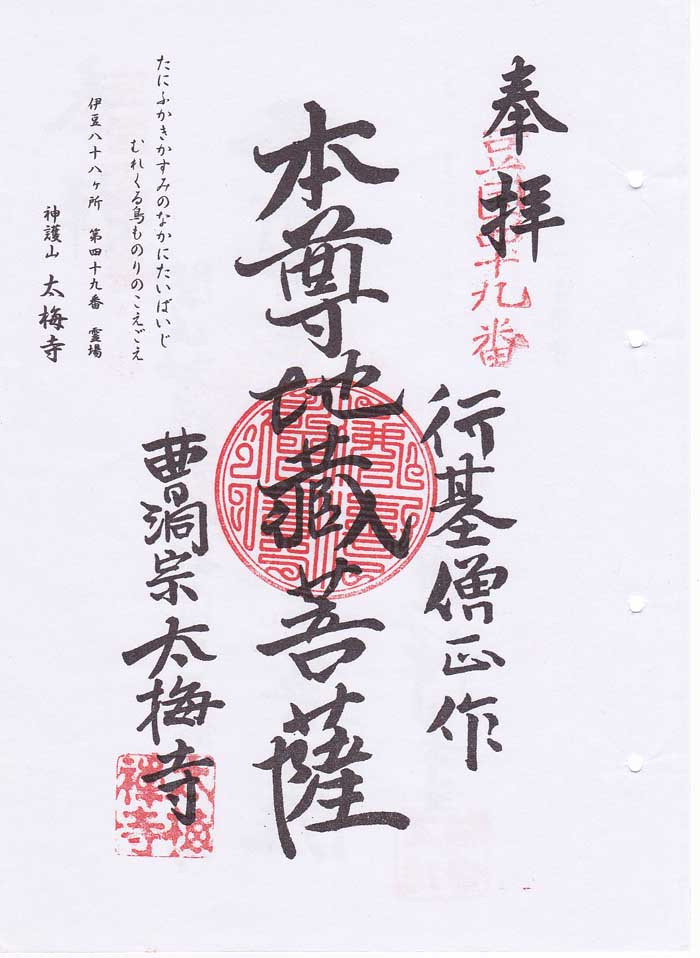 奉拝
豆国四十九番
行基僧正作
本尊地蔵菩薩
曹洞宗太梅寺
たにふかきかすみのなかにたいばいじ
むれくる鳥ものりのこえごえ
伊豆八十八ヶ所 第四十九番 霊場
神護山 太梅寺